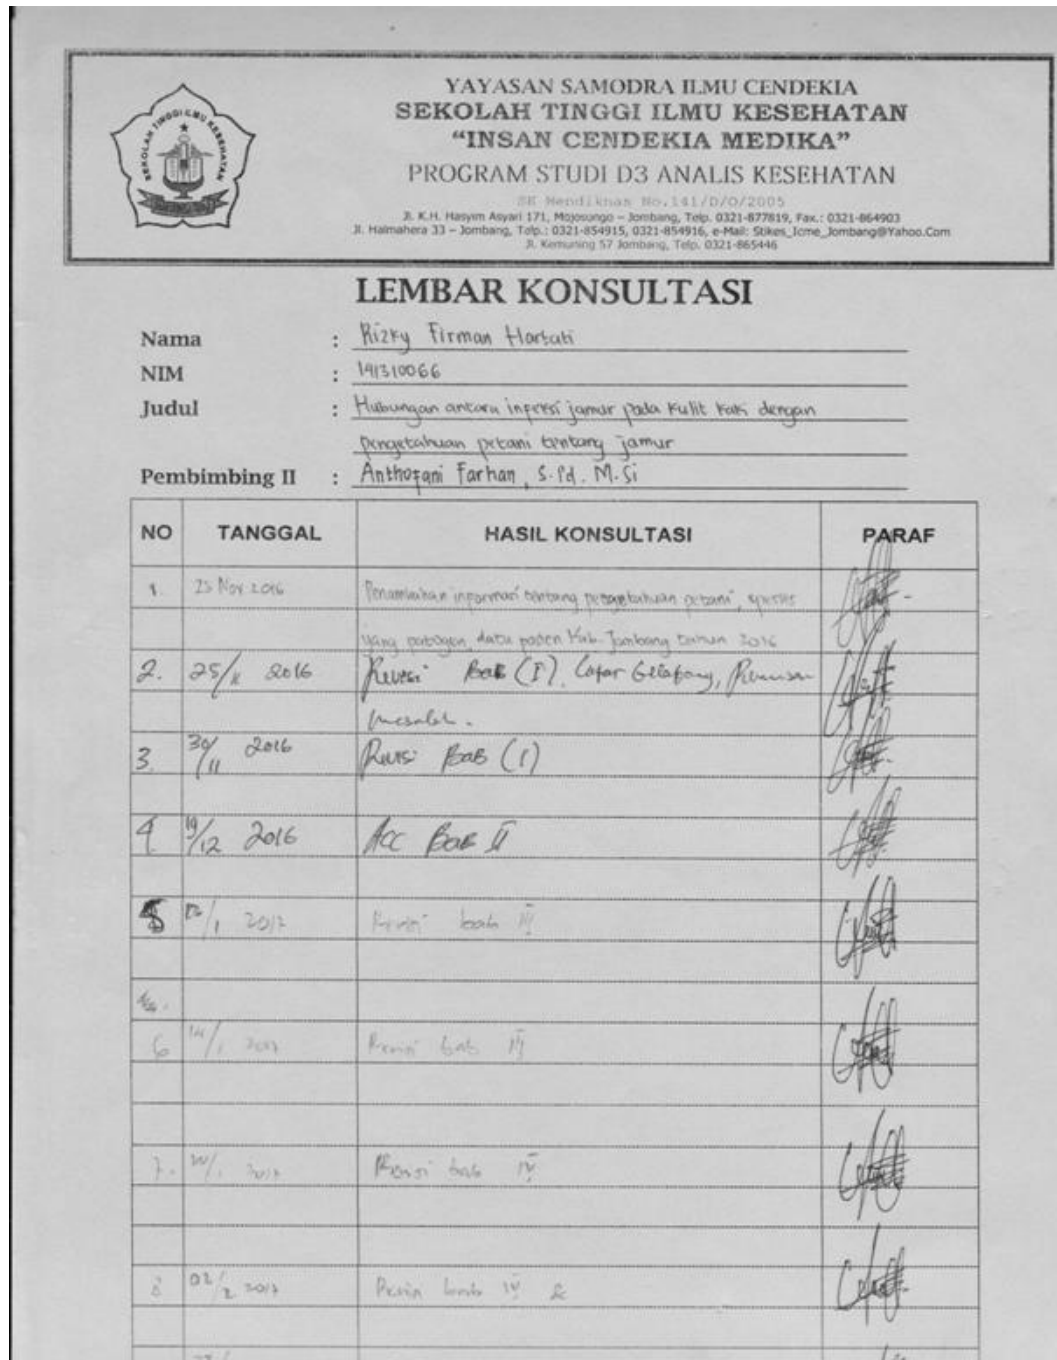 SEKOLAH TINGGI ILMU KESEHATAN
YAYASAN SAMODRA ILMU CENDEKIA
SEKOLAH TINGGI ILMU KESEHATAN
“INSAN CENDEKIA MEDIKA”
PROGRAM STUDI D3 ANALIS KESEHATAN
SK Mendiknas No.141/D/O/2005
Jl. K.H. Hasyim Asyari 171, Mojosongo – Jombang, Telp. 0321-877819, Fax.: 0321-864903
Jl. Halmahera 33 – Jombang, Telp.: 0321-854915, 0321-854916, e-Mail: Stikes_Icme_Jombang@Yahoo.Com
Jl. Kemuning 57 Jombang, Telp. 0321-865446
LEMBAR KONSULTASI
Nama : Rizky Firman Hartati
NIM : 141310066
Judul : Hubungan antara infeksi jamur pada kulit kaki dengan
pengetahuan petani tentang jamur
Pembimbing II : Anthofani Farhan, S.Pd. M.Si
NO TANGGAL HASIL KONSULTASI PARAF
1. 25 Nov 2016 Penambahan informasi tentang pengetahuan petani,
yang patogen, data pasien Kab. Jombang tahun 2016
2. 25/11 2016 Revisi Bab (I), Latar Belakang, Rumusan
masalah.
3. 30/11 2016 Revisi Bab (I)
4. 19/12 2016 Acc Bab II
5 /1 2017 Revisi bab III
6 14/1 2017 Revisi bab III
7. /1 2017 Revisi bab IV
8 02/2 2017 Revisi bab IV &